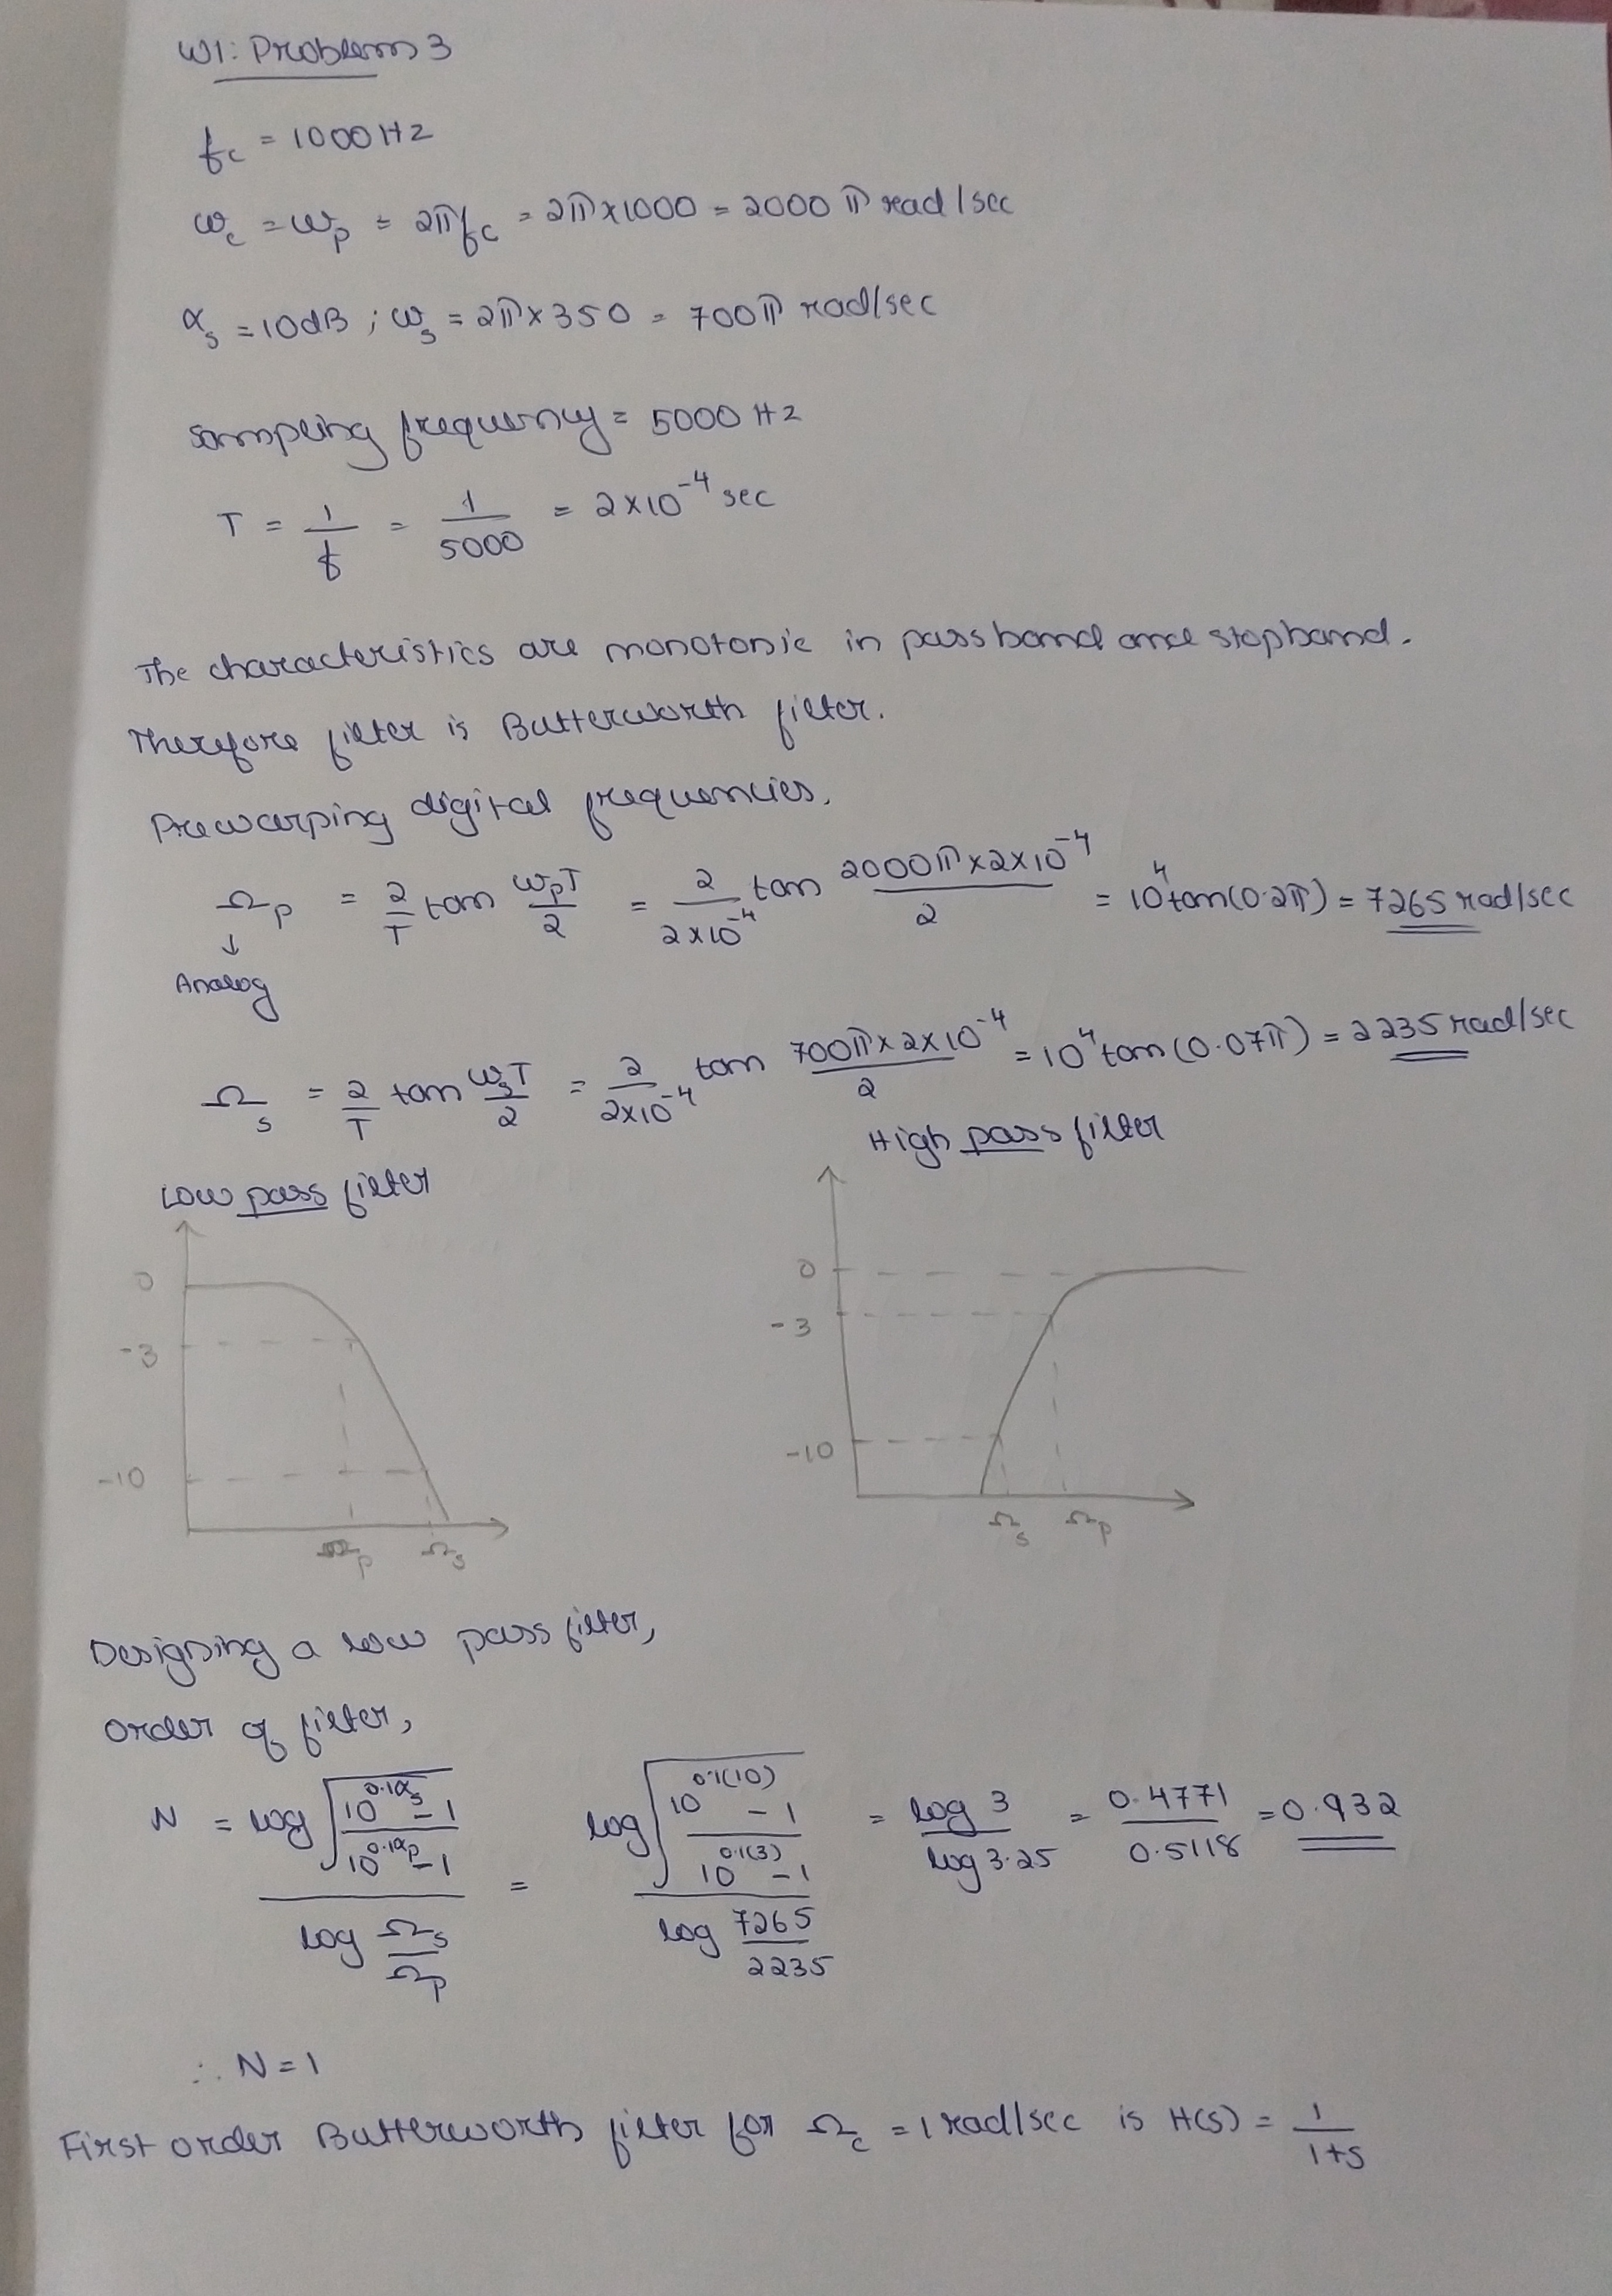 W1: Problem 3
fc = 1000 Hz
ωc = ωp = 2πfc = 2π×1000 = 2000 π rad/sec
αs = 10dB ; ωs = 2π×350 = 700π rad/sec
Sampling frequency = 5000 Hz
T = 1/f = 1/5000 = 2×10⁻⁴ sec
The characteristics are monotonic in passband and stopband.
Therefore filter is Butterworth filter.
Prewarping digital frequencies,
Ωp = 2/T tan ωpT/2 = 2/2×10⁻⁴ tan 2000π×2×10⁻⁴/2 = 10⁴ tan(0.2π) = 7265 rad/sec
↓
Analog
Ωs = 2/T tan ωsT/2 = 2/2×10⁻⁴ tan 700π×2×10⁻⁴/2 = 10⁴ tan(0.07π) = 2235 rad/sec
Low pass filter
0
-3
-10
Ωp Ωs
High pass filter
0
-3
-10
Ωs Ωp
Designing a low pass filter,
Order of filter,
N = log √(10^0.1αs - 1 / 10^0.1αp - 1) / log Ωs/Ωp = log √(10^0.1(10) - 1 / 10^0.1(3) - 1) / log 7265/2235 = log 3 / log 3.25 = 0.4771/0.5118 = 0.932
∴ N = 1
First order Butterworth filter for Ωc = 1 rad/sec is H(s) = 1/1+s